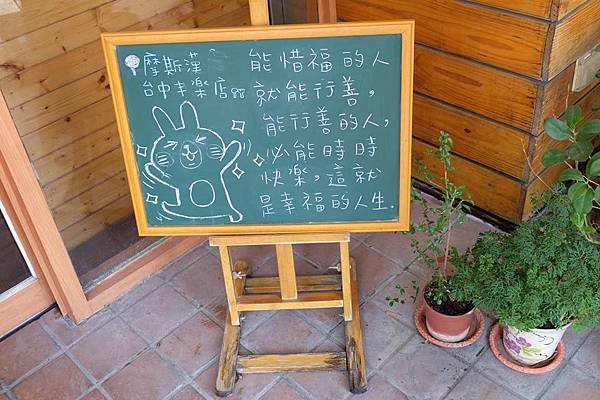 摩斯漢
台中丰楽店
能惜福的人
就能行善，
能行善的人，
必能時時
快楽，這就
是幸福的人生.